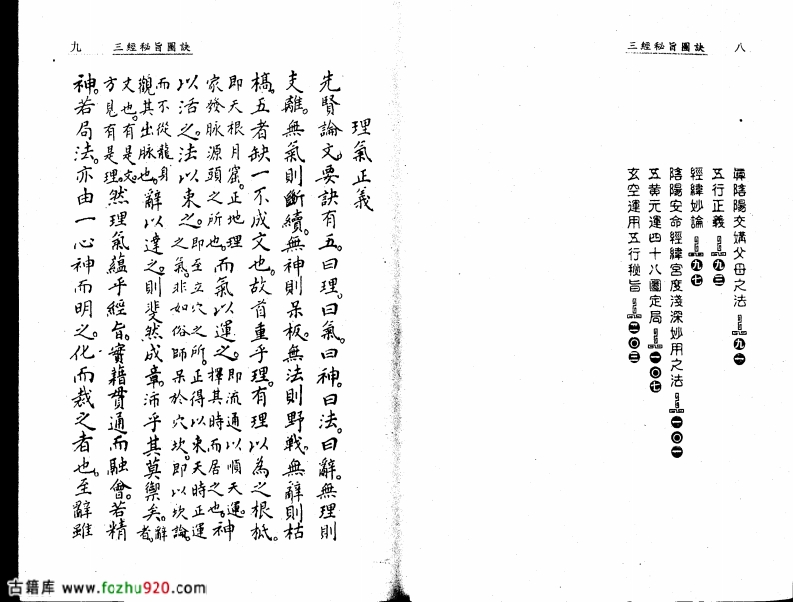 三經秘旨圖訣 八
眞陰陽交媾父母之法 九一
五行正義 九三
經緯妙論 九七
陰陽安命經緯宮度淺深妙用之法 一〇一
五黃元運四十八圖定局 一〇七
玄空運用五行秘旨 二〇三
三經秘旨圖訣 九
理氣正義
先賢論文。要訣有五。曰理。曰氣。曰神。曰法。曰辭。無理則
支離。無氣則斷續。無神則呆板。無法則野戰。無辭則枯
槁。五者缺一不成文也。故首重乎理。有理以為之根柢。
即天根月窟。正地理家發脈源頭之所也。而氣以運之。即流通以順天運。擇其時而居之也。神
以活之。法以束之。即至立穴之所。正得以束天時正運之氣。非如俗師呆於穴坎。即以坎論。
而不從龍身觀其出脈也。辭以達之。則斐然成章。沛乎其莫禦矣。辭者。
文也。有是文。方見有是理。然理氣蘊乎經旨。實籍貫通而融會。若精
神。若局法。亦由一心神而明之。化而裁之者也。至辭雖
古籍库 www.fozhu920.com